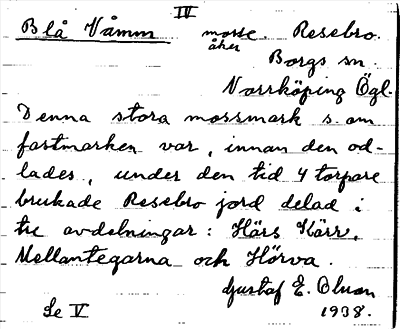 IV
Blå Våmm mosse. Resebro.
åker
Borgs sn.
Norrköping Ögl.
Denna stora mossmark s. om
fastmarken var, innan den od-
lades, under den tid 4 torpare
brukade Resebro jord delad i
tre avdelningar: Härs Kärr,
Mellantegarna och Hörva.
Gustaf E. Olson
Se V 1938.